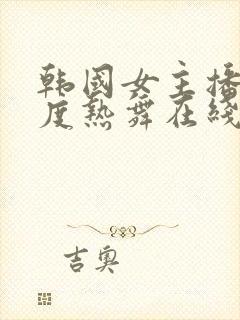 韩国女主播
度热舞在线
吉奥